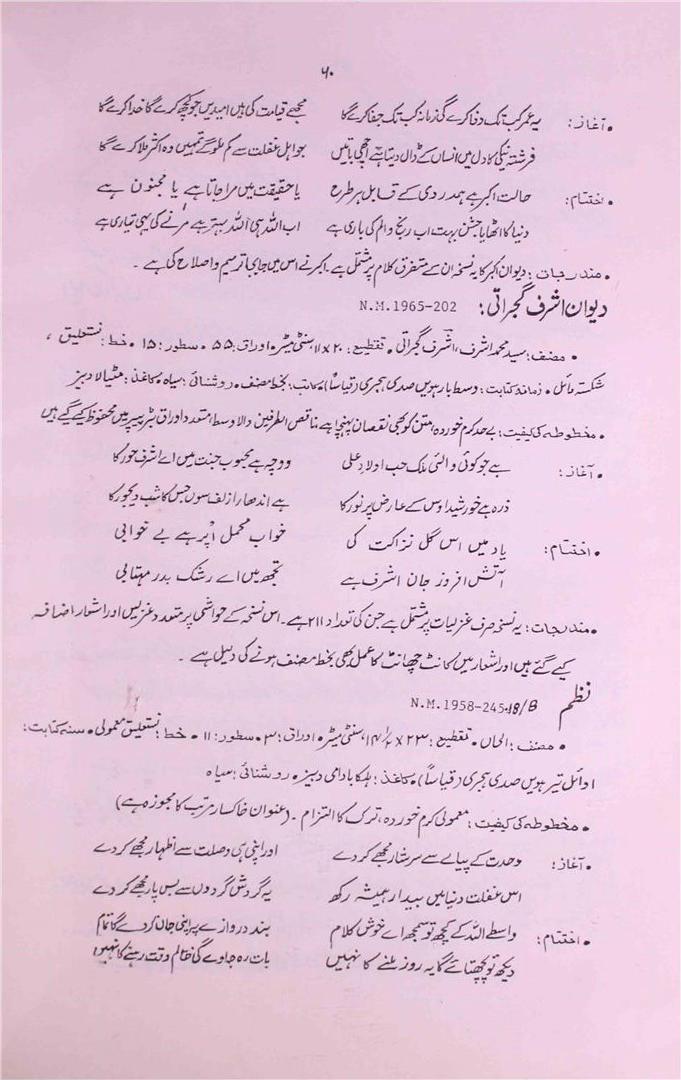 ۶۰
• آغاز: یہ عمر کب تک وفا کرے گی زمانہ کب تک جفا کرے گا مجھے قیامت کی ہیں امیدیں جو کچھ کرے گا خدا کرے گا
فرشتہ نیکی کا دل میں انساں کے ڈال دیتا ہے اچھی باتیں جو اہل غفلت سے کم ملو گے تمہیں وہ اکثر ملا کرے گا
• اختتام: حالت اکبر ہے ہمدردی کے قابل ہر طرح یا حقیقت میں مرا جاتا ہے یا مجنون ہے
دنیا کا اٹھایا جشن بہت اب رنج و الم کی باری ہے اب اللہ ہی اللہ بہتر ہے مرنے کی یہی تیاری ہے
• مندرجات: دیوان اکبر کا یہ نسخہ ان کے متفرق کلام پر مشتمل ہے۔ اکبر نے اس میں جابجا ترمیم و اصلاح کی ہے۔
دیوان اشرف گجراتی: N.M.1965-202
• مصنف: سید محمد اشرف، اشرف گجراتی • تقطیع: ۲۰ × ۱۱ سنٹی میٹر • اوراق: ۵۵ • سطور: ۱۵ • خط: نستعلیق،
شکستہ مائل • زمانہ کتابت: وسط بارہویں صدی ہجری (قیاساً) • کاتب: بخط مصنف • روشنائی: سیاہ • کاغذ: مٹیالا دبیز
• مخطوطہ کی کیفیت: بے حد کرم خوردہ، متن کو بھی نقصان پہنچا ہے ناقص الطرفین والاوسط، متعدد اوراق بٹر پیپر میں محفوظ کیے گئے ہیں
• آغاز: ہے جو کوئی والئی ملک حب اولاد علی وو چہ ہے محبوب جنت میں اے اشرف حور کا
ذرہ ہے خورشید اوس کے عارض پر نور کا ہے اندھارا زلف سوں جس کا شب دیجور کا
• اختتام: یاد میں اس گل نزاکت کی خواب مخمل اُپر ہے بے خوابی
آتش افروز جان اشرف ہے تجھ میں اے رشک بدر مہتابی
• مندرجات: یہ نسخہ صرف غزلیات پر مشتمل ہے جن کی تعداد ۲۱۱ ہے۔ اس نسخہ کے حواشی پر متعدد غزلیں اور اشعار اضافہ
کیے گئے ہیں اور اشعار میں کانٹ چھانٹ کا عمل بھی بخط مصنف ہونے کی دلیل ہے۔
نظم N.M.1958-245-18/B
• مصنف: الحان • تقطیع: ۲۳ × ۱۴/۲ سنٹی میٹر • اوراق: ۳ • سطور: ۱۱ • خط: نستعلیق معمولی • سنہ کتابت:
اوائل تیرہویں صدی ہجری (قیاساً) • کاغذ: ہلکا بادامی دبیز • روشنائی: سیاہ
• مخطوطہ کی کیفیت: معمولی کرم خوردہ، ترک کا التزام۔ (عنوان خاکسار مرتب کا مجوزہ ہے)
• آغاز: وحدت کے پیالے سے سرشار مجھے کر دے اور اپنی ہی وصلت سے اظہار مجھے کر دے
اس غفلت دنیا میں بیدار ہمیشہ رکھ یہ گردش گردوں سے بس پار مجھے کر دے
• اختتام: واسطے اللہ کے کچھ تو سمجھ اے خوش کلام بند دروازے پر اپنی جان کر دے گا تمام
دیکھ تو پچھتائے گا یہ روز ملنے کا نہیں بات رہ جاوے گی ظالم وقت رہنے کا نہیں